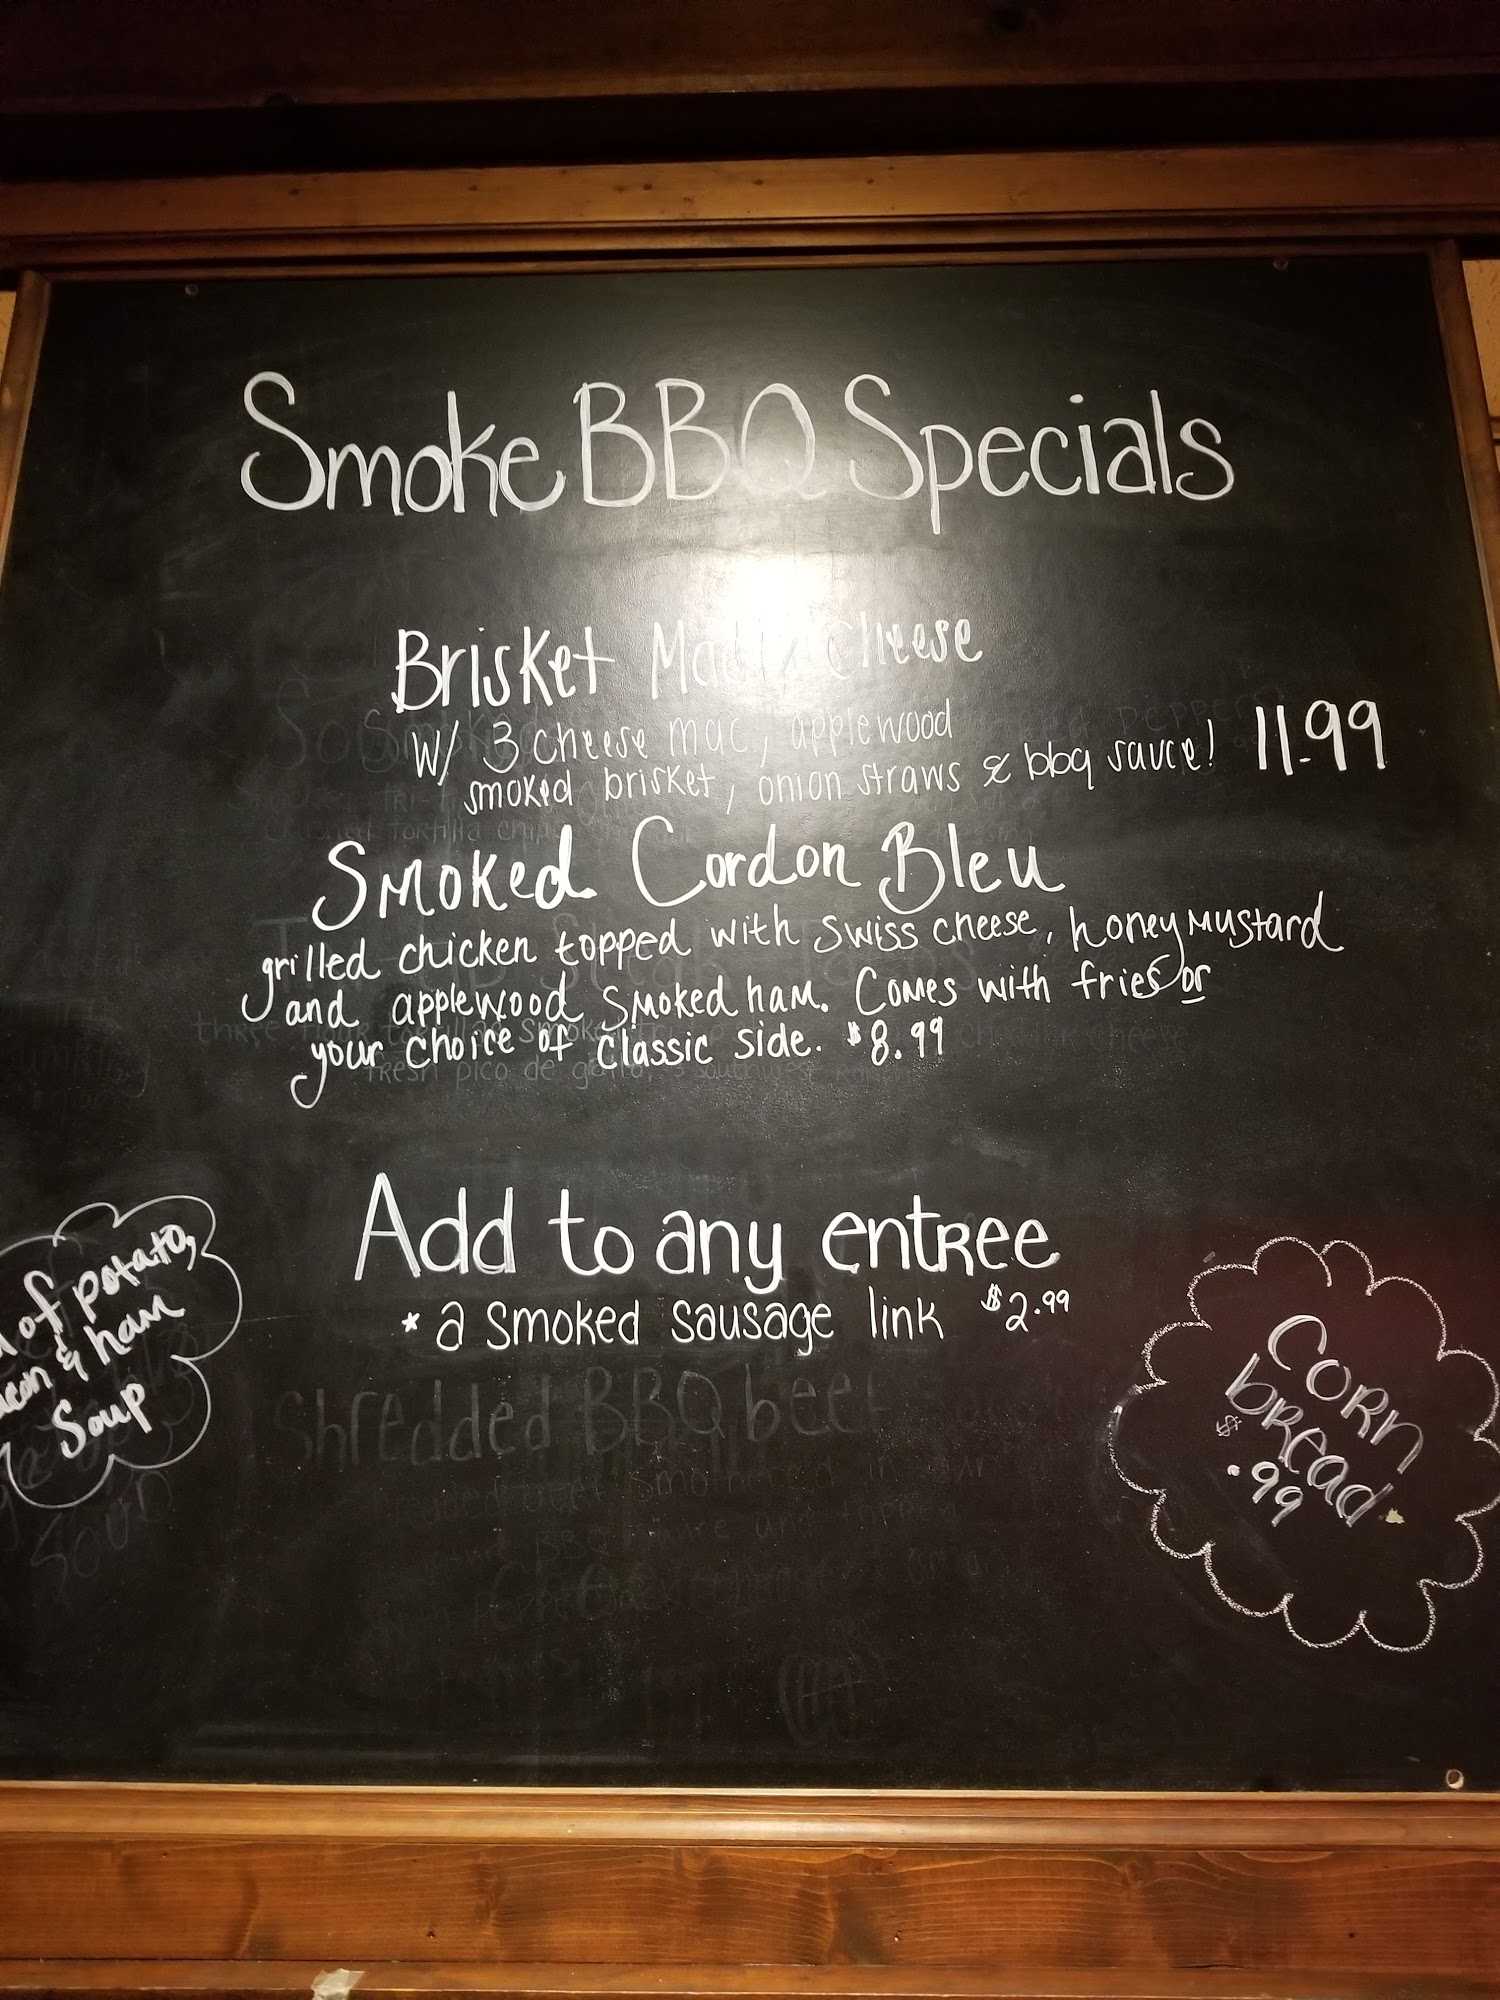 Smoke BBQ Specials
Brisket Mac & Cheese
w/ 3 cheese mac, applewood
smoked brisket, onion straws & bbq sauce! 11.99
Smoked Cordon Bleu
grilled chicken topped with swiss cheese, honey mustard
and applewood smoked ham. Comes with fries or
your choice of classic side. $8.99
Add to any entree
* a smoked sausage link $2.99
of potato,
& ham
Soup
Corn
bread
$.99
Shredded BBQ beef